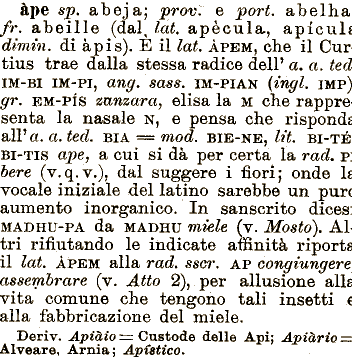 àpe sp. abeja; prov. e port. abelha
fr. abeille (dal lat. apècula, apicula
dimin. di àpis). È il lat. ÀPEM, che il Cur
tius trae dalla stessa radice dell' a. a. ted.
IM-BI IM-PI, ang. sass. IM-PIAN (ingl. IMP)
gr. EM-PÍS zanzara, elisa la M che rappre
senta la nasale N, e pensa che risponda
all' a. a. ted. BIA = mod. BIE-NE, lit. BI-TĖ
BI-TIS ape, a cui si dà per certa la rad. PI
bere (v. q. v.), dal suggere i fiori; onde la
vocale iniziale del latino sarebbe un puro
aumento inorganico. In sanscrito dicesi
MADHU-PA da MADHU miele (v. Mosto). Al-
tri rifiutando le indicate affinità riporta
il lat. ÀPEM alla rad. sscr. AP congiungere,
assembrare (v. Atto 2), per allusione alla
vita comune che tengono tali insetti e
alla fabbricazione del miele.
Deriv. Apiàio = Custode delle Api; Apiàrio =
Alveare, Arnia; Apístico.